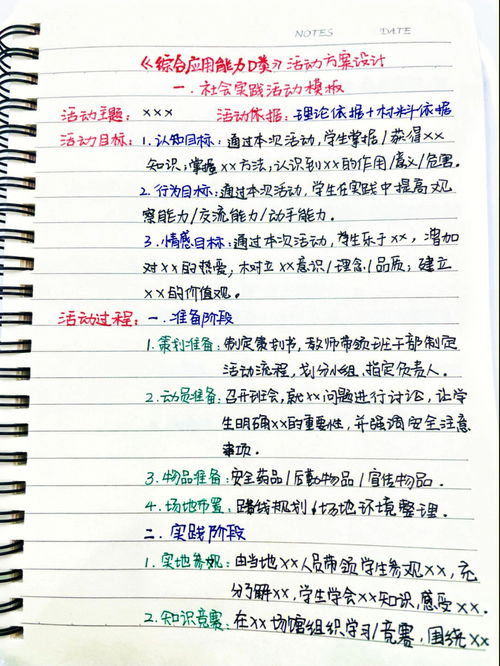 NOTES DATE
《综合应用能力D类》活动方案设计
一.社会实践活动模板
活动主题：××× 活动依据：理论依据+材料依据
活动目标：1.认知目标：通过本次活动,学生掌握/获得××
知识;掌握××方法,认识到××的作用/意义/危害。
2.行为目标：通过本次活动,学生在实践中提高观
察能力/交流能力/动手能力。
3.情感目标：通过本次活动,学生乐于××,增加
对××的热爱,树立××意识/理念/品质;建立
××的价值观。
活动过程：一.准备阶段
1.策划准备：制定策划书,教师带领班干部制定
活动流程,划分小组、指定负责人。
2.动员准备：召开班会,就××问题进行讨论,让学
生明确××的重要性,并强调安全注意
事项。
3.物品准备：安全药品/后勤物品/宣传物品.
4.场地布置：路线规划/场地环境整理.
二.实践阶段
1.实地参观：由当地××人员带领学生参观××,充
分了解××,学生学会××知识,感受××.
2.知识竞赛：在××场馆组织学习/竞赛,围绕××